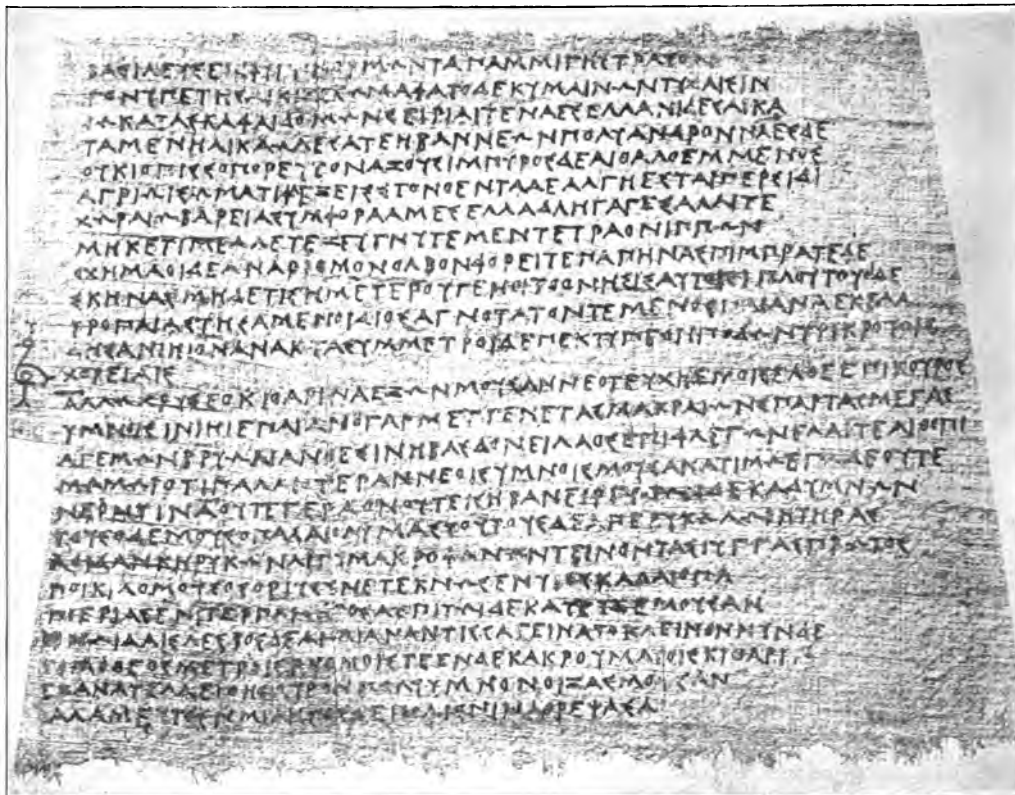 ΒΑΣΙΛΕΥΣΕΙΣΦΥΓΗΝΟΡΜΩΝΤΑΠΑΜΜΙΓΗΣΤΡΑΤΟΝ
ΓΟΝΥΠΕΤΗΣΑΙΚΙΖΕΣΩΜΑΦΑΤΟΔΕΚΥΜΑΙΝΩΝΤΥΧΑΙΣΙΝ
ΙΩΚΑΤΑΣΚΑΦΑΙΔΟΜΩΝΣΕΙΡΙΑΙΤΕΝΑΕΣΕΛΛΑΝΙΔΕΣΑΙΚΑ
ΤΑΜΕΝΗΛΙΚΑΩΛΕΣΑΤΕΗΒΑΝΝΕΩΝΠΟΛΥΑΝΔΡΟΝΝΑΕΣΔΕ
ΟΥΚΙΟΠΙΣΣΟΠΟΡΕΥΤΟΝΑΞΟΥΣΙΜΠΥΡΟΣΔΕΑΙΘΑΛΟΕΜΜΕΝΟΣ
ΑΓΡΙΩΙΣΩΜΑΤΙΦΛΕΞΕΙΣΕΣΤΟΝΟΕΝΤΑΔΕΑΛΓΗΕΣΤΑΙΠΕΡΣΙΔΙ
ΧΩΡΑΙΩΒΑΡΕΙΑΣΥΜΦΟΡΑΑΜΕΣΕΛΛΑΔΑΗΓΑΓΕΣΑΛΛΙΤΕ
ΜΗΚΕΤΙΜΕΛΛΕΤΕΖΕΥΓΝΥΤΕΜΕΝΤΕΤΡΑΟΝΙΠΠΩΝ
ΟΧΗΜΑΟΙΔΕΑΝΑΡΙΘΜΟΝΟΛΒΟΝΦΟΡΕΙΤΕΝΑΠΗΝΑΣΠΙΜΠΡΑΤΕΔΕ
ΣΚΗΝΑΣΜΗΔΕΤΙΣΗΜΕΤΕΡΟΥΓΕΝΟΙΤΟΟΝΗΣΙΣΑΥΤΟΙΣΙΠΛΟΥΤΟΥΟΙΔΕ
ΤΡΟΠΑΙΑΣΤΗΣΑΜΕΝΟΙΔΙΟΣΑΓΝΟΤΑΤΟΝΤΕΜΕΝΟΣΠΑΙΑΝΑΕΚΕΛΑ
ΔΗΣΑΝΙΗΙΟΝΑΝΑΚΤΑΣΥΜΜΕΤΡΟΙΔΕΠΕΚΤΥΠΕΟΝΠΟΔΩΝΥΨΙΚΡΟΤΟΙΣ
ΧΟΡΕΙΑΙΣ
ΑΛΛΩΧΡΥΣΕΟΚΙΘΑΡΙΝΑΕΞΩΝΜΟΥΣΑΝΝΕΟΤΕΥΧΗΕΜΟΙΣΕΛΘΕΕΠΙΚΟΥΡΟΣ
ΥΜΝΟΙΣΙΝΙΗΙΕΠΑΙΑΝΟΓΑΡΜΕΥΓΕΝΕΤΑΣΜΑΚΡΑΙΩΝΣΠΑΡΤΑΣΜΕΓΑΣ
ΑΓΕΜΩΝΒΡΥΩΝΑΝΘΕΣΙΝΗΒΑΣΔΟΝΕΙΛΑΟΣΕΠΙΦΛΕΓΩΝΕΛΑΙΤΕΑΙΘΟΠΙ
ΜΩΜΩΙΟΤΙΠΑΛΑΙΟΤΕΡΑΝΝΕΟΙΣΥΜΝΟΙΣΜΟΥΣΑΝΑΤΙΜΩΕΓΩΔΕΟΥΤΕ
ΝΕΟΝΤΙΝΑΟΥΤΕΓΕΡΑΟΝΟΥΤΕΙΣΗΒΑΝΕΙΡΓΩΤΩΝΔΕΚΑΣΥΜΝΩΝ
ΤΟΥΣΔΕΜΟΥΣΟΠΑΛΑΙΟΛΥΜΑΣΤΟΥΤΟΥΣΔΑΠΕΡΥΚΩΛΩΒΗΤΗΡΑΣ
ΑΟΙΔΑΝΚΗΡΥΚΩΝΛΙΓΥΜΑΚΡΟΦΩΝΩΝΤΕΙΝΟΝΤΑΣΙΥΓΓΑΣΠΡΩΤΟΣ
ΠΟΙΚΙΛΟΜΟΥΣΟΣΟΡΙΥΣΥΝΕΤΕΚΝΩΣΕΝΥΙΟΣΚΑΛΛΙΟΠΑ
ΠΙΕΡΙΑΣΕΝΙΤΕΡΠΑΝΔΡΟΣΔΕΠΙΤΩΙΔΕΚΑΤΕΥΞΕΜΟΥΣΑΝ
ΕΝΩΙΔΑΙΣΛΕΣΒΟΣΔΕΑΙΟΛΙΑΝΑΝΤΙΣΣΑΓΕΙΝΑΤΟΚΛΕΙΝΟΝΝΥΝΔΕ
ΤΙΜΟΘΕΟΣΜΕΤΡΟΙΣΡΥΘΜΟΙΣΤΕΕΝΔΕΚΑΚΡΟΥΜΑΤΟΙΣΚΙΘΑΡΙ
ΕΞΑΝΑΤΕΛΛΕΙΘΗΣΑΥΡΟΝΠΟΛΥΥΜΝΟΝΟΙΞΑΣΜΟΥΣΑΝ
ΘΑΛΑΜΕΥΤΟΝΜΙΛΗΤΟΣΔΕΠΟΛΙΣΝΙΝΑΘΡΕΨΑΣΑ